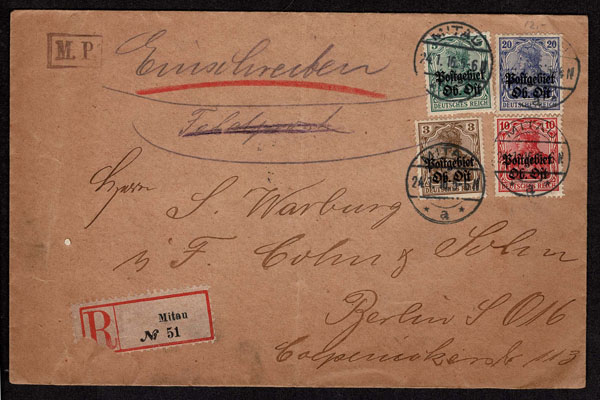 M.P.
Einschreiben
Feldpost
MITAU
24.7.16. 5-6N
5
Postgebiet
Ob. Ost
DEUTSCHES REICH
20 20
Postgebiet
Ob. Ost
DEUTSCHES REICH
3 3
Postgebiet
Ob. Ost
10 10
Postgebiet
Ob. Ost
DEUTSCHES REICH
MITAU
a
Herrn S. Warburg
i/ F. Cohn & Sohn
Berlin S O 16
Coepenickerstr 113
R
Mitau
№ 51